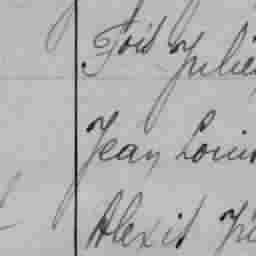 Foid Julie
Jean Louis
Alexis Ju